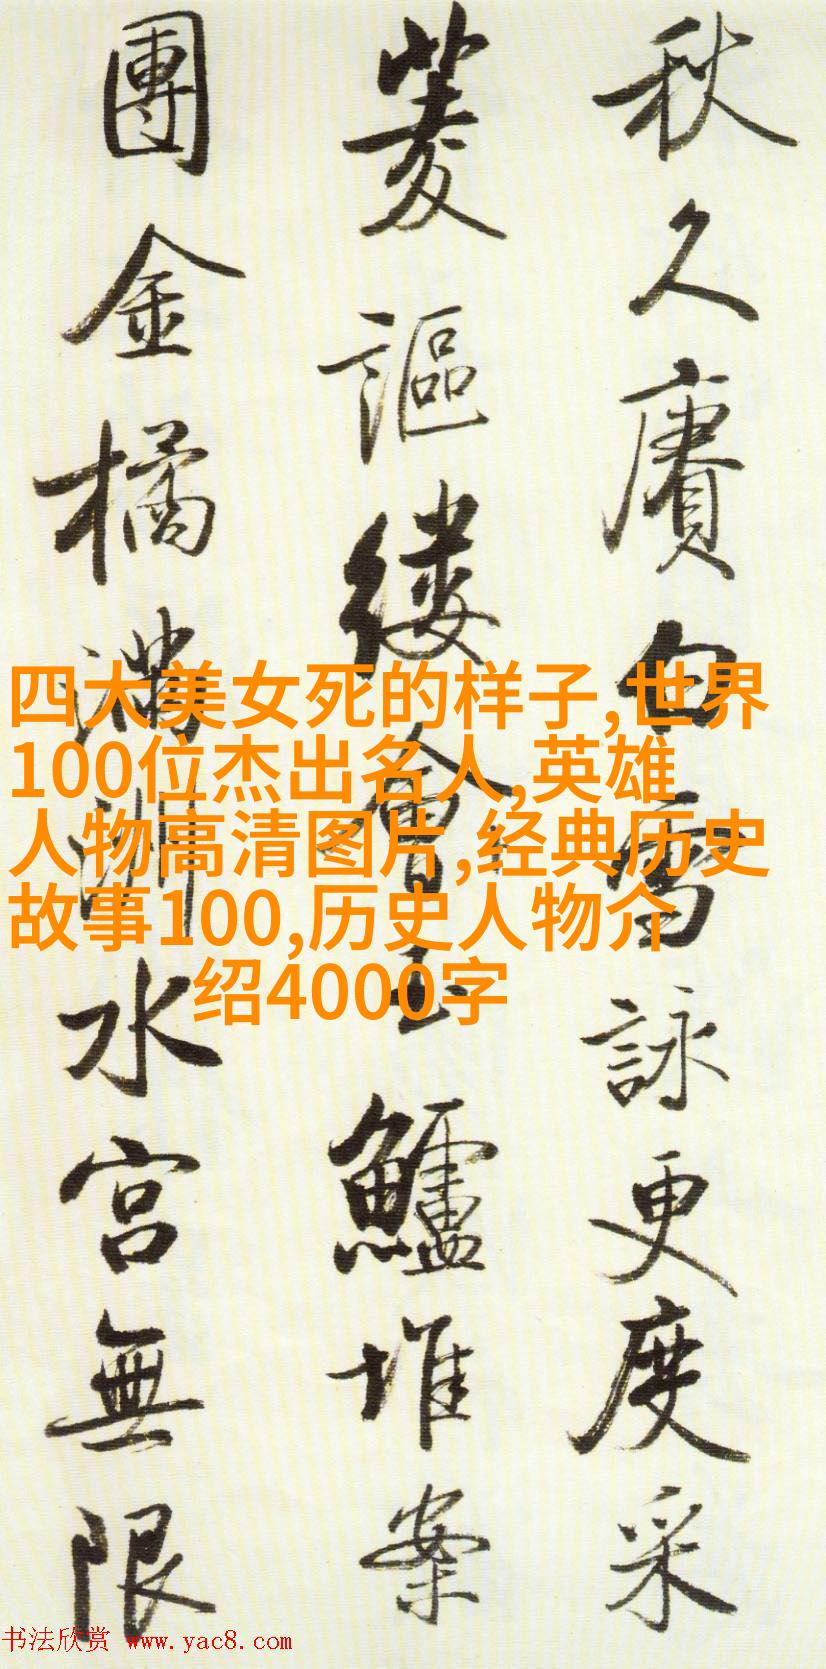 秋久賡白雪詠更度采
菱謳縷會玉鱸堆案
團金橘滿洲水宮無限
四大美女死的样子,世界
100位杰出名人,英雄
人物高清图片,经典历史
故事100,历史人物介
绍4000字
书法欣赏 www.yac8.com